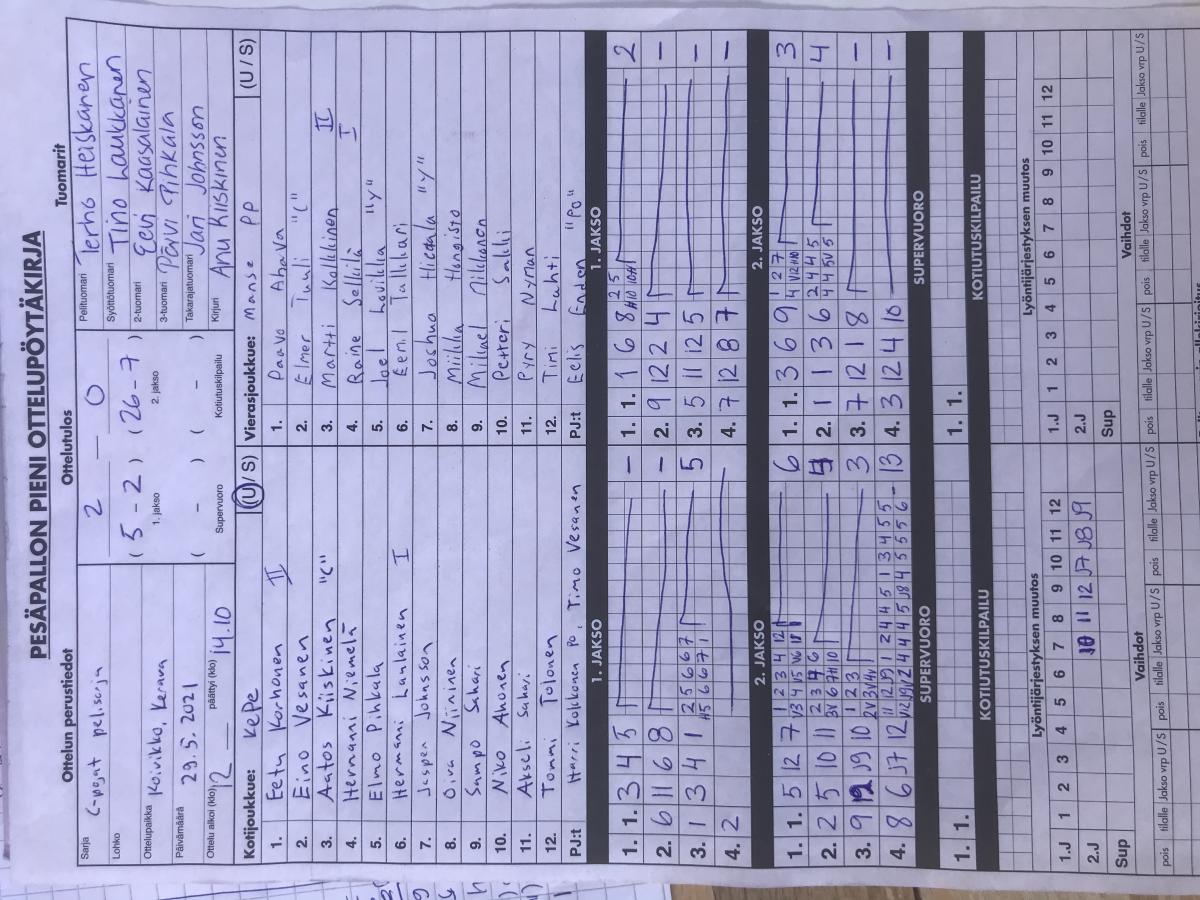 PESÄPALLON PIENI OTTELUPÖYTÄKIRJA
Ottelun perustiedot
Sarja C-pojat pelisarja
Lohko
Ottelupaikka Koivikko, Kerava
Päivämäärä 29.5.2021
Ottelu alkoi (klo) 12 päättyi (klo) 14.10
Ottelutulos
2 — 0
( 5 - 2 ) ( 26 - 7 )
1. jakso 2. jakso
( - ) ( - )
Supervuoro Kotiutuskilpailu
Tuomarit
Pelituomari Terho Heiskanen
Syöttötuomari Timo Laukkanen
2-tuomari Eevi Kaasalainen
3-tuomari Päivi Pihkala
Takarajatuomari Jari Johnsson
Kirjuri Anu Kiiskinen
Kotijoukkue: KePe (U / S)
1. Eetu Korhonen II
2. Eino Vesanen
3. Aatos Kiiskinen "C"
4. Hermanni Niemelä
5. Elmo Pihkala
6. Hermanni Laulainen I
7. Jesper Johnsson
8. Oiva Niininen
9. Sampo Sahari
10. Niko Ahonen
11. Akseli Sahari
12. Tommi Tolonen
PJ:t Harri Kolkonen PO, Timo Vesanen
Vierasjoukkue: Manse PP (U / S)
1. Paavo Ahava
2. Elmer Tuuli "C"
3. Martti Kolkkinen II
4. Raine Selkilä I
5. Joel "Y"
6. Eemi
7. Joshua Hietala "Y"
8. Miikka Hangisto
9. Mikael Mikkonen
10. Petteri Salli
11. Pyry Nyman
12. Timi Lahti
PJ:t Eelis "PO"
1. JAKSO
1. 1. 3 4 5 -
2. 6 11 6 8 -
3. 1 3 4 1 2 5 6 6 7 5
4. 2
1. JAKSO
1. 1. 1 6 8 2 5 2
2. 9 12 2 4 -
3. 5 11 12 5 -
4. 7 12 8 7 -
2. JAKSO
1. 1. 5 12 7 1 2 3 4 12 6
2. 2 5 10 11 4
3. 9 12 J9 10 1 2 3 3
4. 8 6 J7 12 11 12 J9 1 2 4 4 5 1 3 4 5 5 - 13
2. JAKSO
1. 1. 3 6 9 1 2 7 3
2. 1 1 3 6 2 4 4 5 4
3. 7 12 1 8 -
4. 3 12 4 10 -
SUPERVUORO
1. 1.
SUPERVUORO
1. 1.
KOTIUTUSKILPAILU
KOTIUTUSKILPAILU
Lyöntijärjestyksen muutos
1.J 1 2 3 4 5 6 7 8 9 10 11 12
2.J 10 11 12 J7 J8 J9
Sup
Lyöntijärjestyksen muutos
1.J 1 2 3 4 5 6 7 8 9 10 11 12
2.J
Sup
Vaihdot
pois tilalle Jakso vrp U/S pois tilalle Jakso vrp U/S pois tilalle Jakso vrp U/S
Vaihdot
pois tilalle Jakso vrp U/S pois tilalle Jakso vrp U/S pois tilalle Jakso vrp U/S